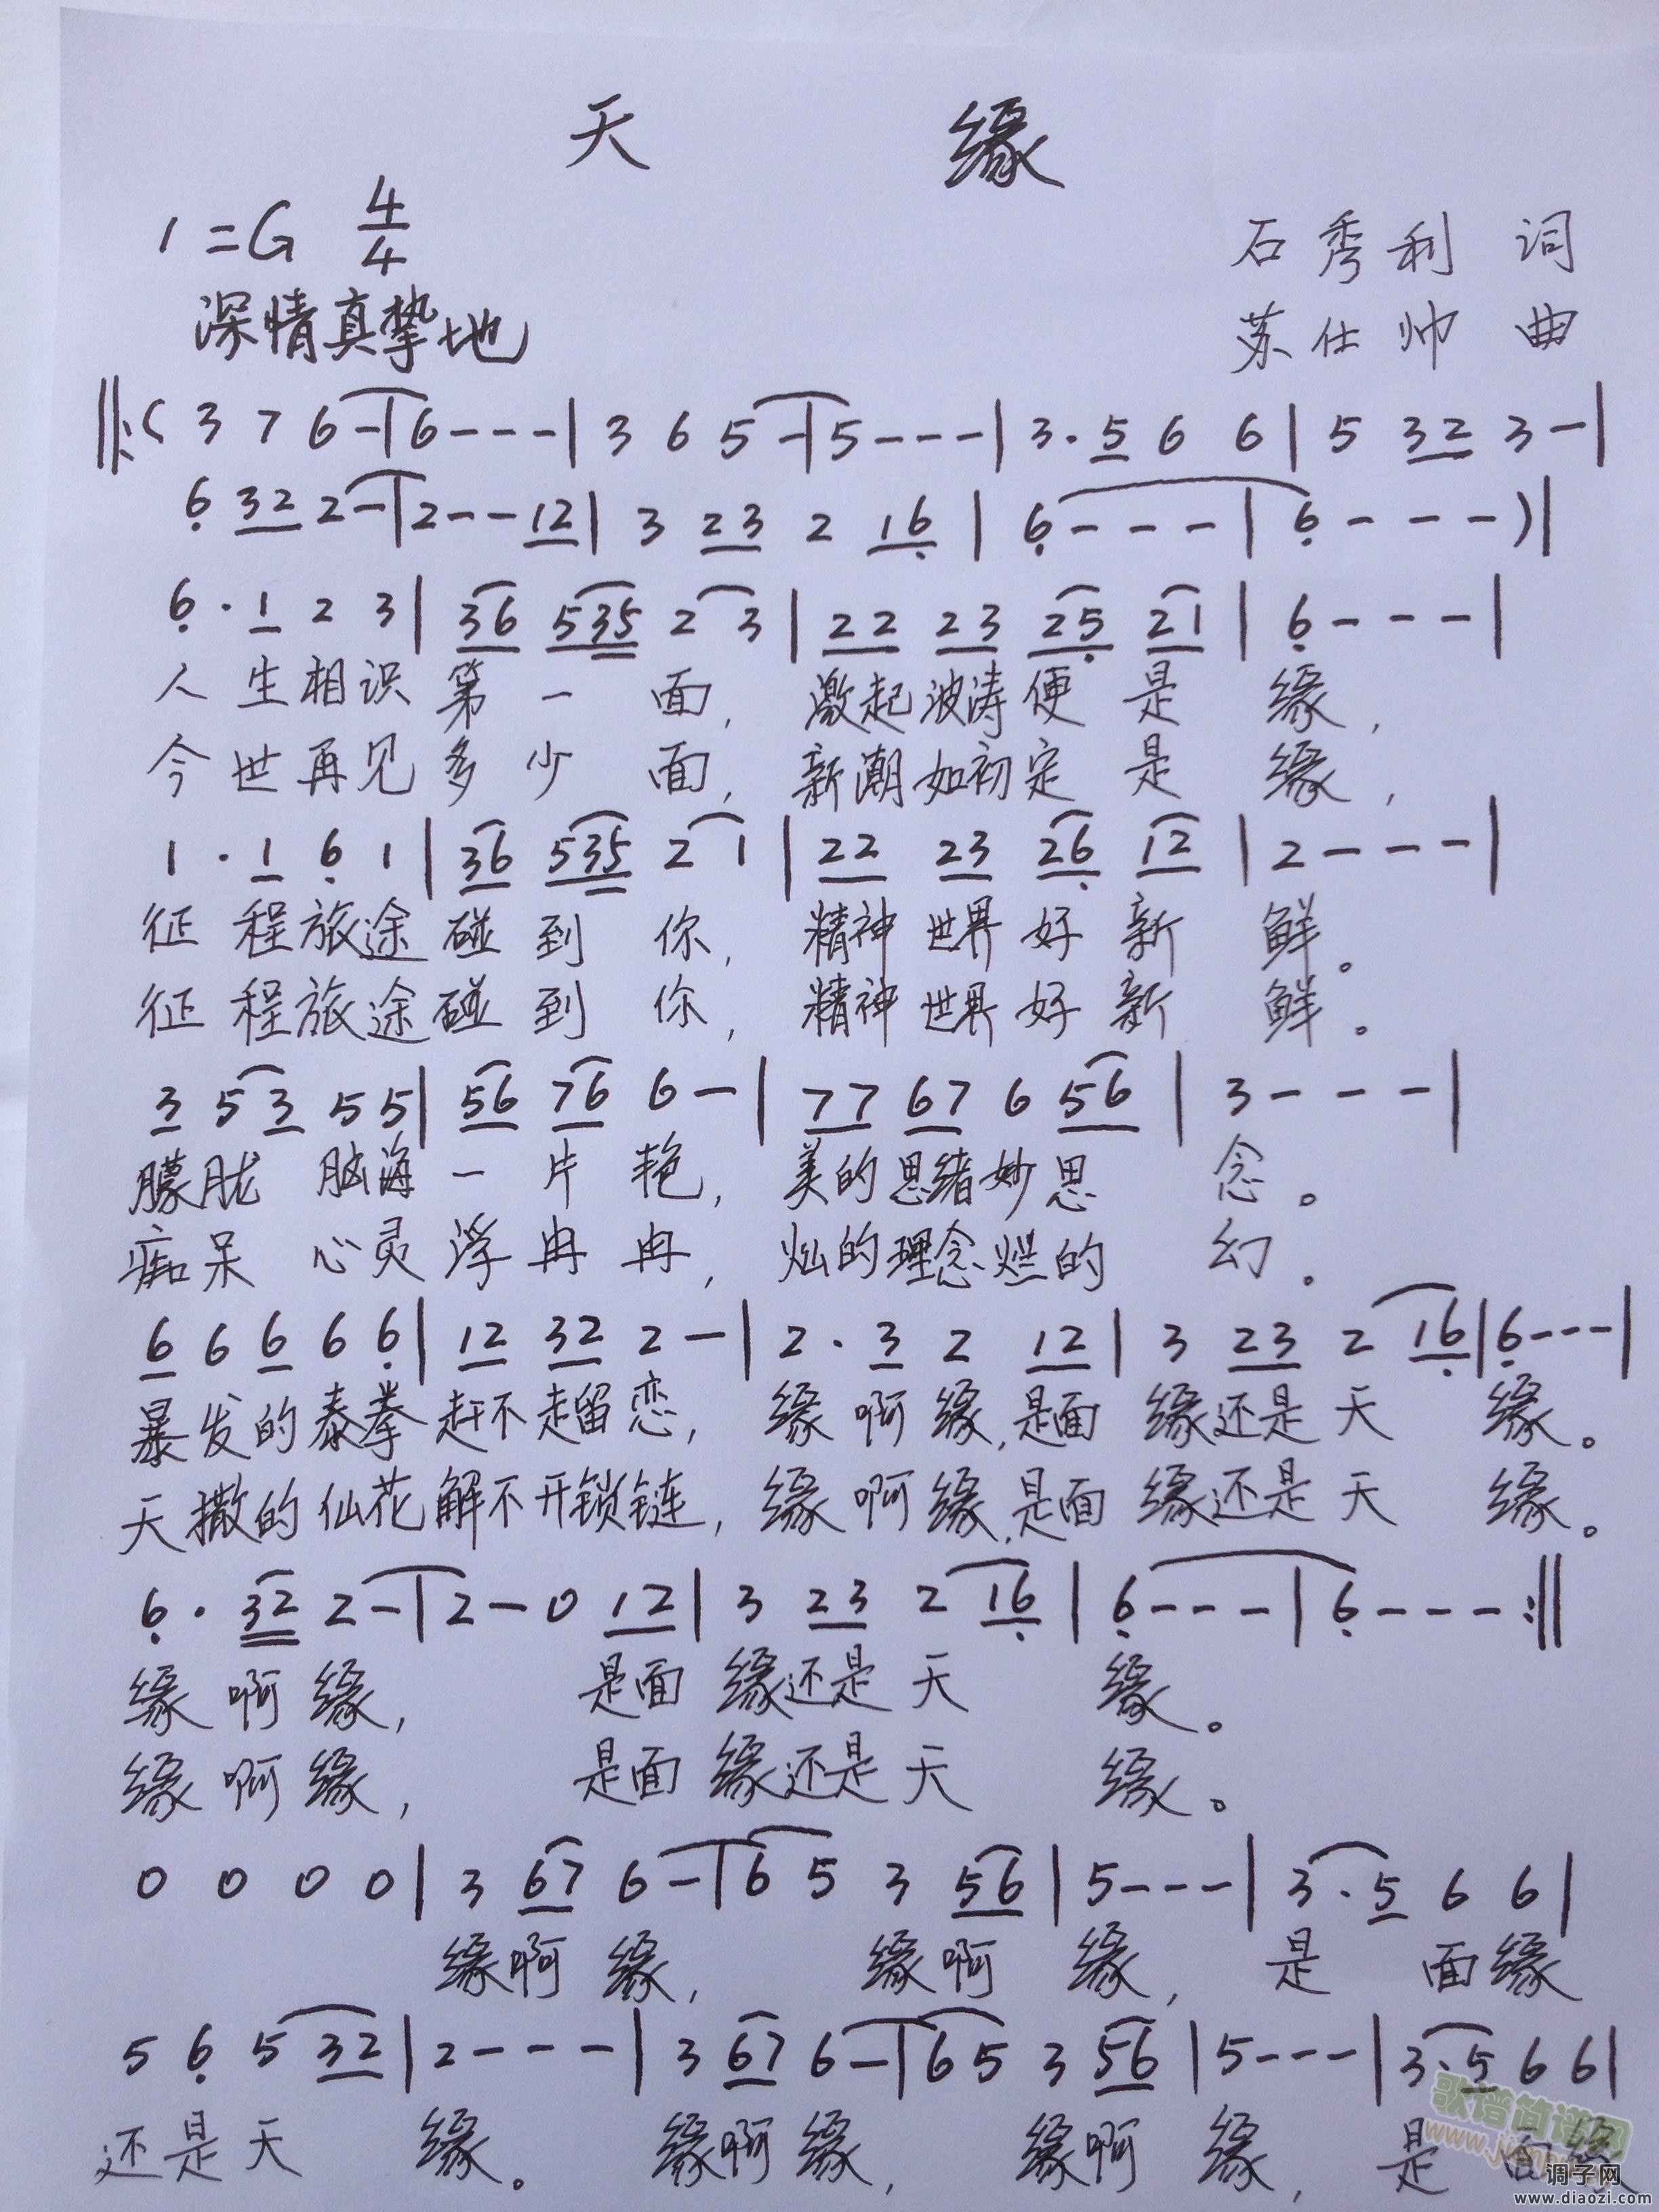 天 缘
1=G 4/4
石秀利 词
深情真挚地
苏仕帅 曲
‖:( 3 7 6 - | 6 - - - | 3 6 5 - | 5 - - - | 3· 5 6 6 | 5 32 3 - |
6 32 2 - | 2 - - 12 | 3 23 2 16 | 6 - - - | 6 - - - ) |
6· 1 2 3 | 36 535 2 3 | 22 23 25 21 | 6 - - - |
人生相识第一面, 激起波涛便是缘,
今世再见多少面, 新潮如初定是缘,
1· 1 6 1 | 36 535 2 1 | 22 23 26 12 | 2 - - - |
征程旅途碰到你, 精神世界好新鲜。
征程旅途碰到你, 精神世界好新鲜。
3 5 3 5 5 | 56 76 6 - | 77 67 6 56 | 3 - - - |
朦胧脑海一片艳, 美的思绪妙思念。
痴呆心灵浮冉冉, 灿的理念烂的幻。
6 6 6 6 6 | 12 32 2 - | 2· 3 2 12 | 3 23 2 16 | 6 - - - |
暴发的泰拳赶不走留恋, 缘啊缘,是面缘还是天缘。
天撒的仙花解不开锁链, 缘啊缘,是面缘还是天缘。
6· 32 2 - | 2 - 0 12 | 3 23 2 16 | 6 - - - | 6 - - - :‖
缘啊缘, 是面缘还是天缘。
缘啊缘, 是面缘还是天缘。
0 0 0 0 | 3 67 6 - | 6 5 3 56 | 5 - - - | 3· 5 6 6 |
缘啊缘, 缘啊缘, 是面缘
5 6 5 32 | 2 - - - | 3 67 6 - | 6 5 3 56 | 5 - - - | 3· 5 6 6 |
还是天缘。 缘啊缘, 缘啊缘, 是面缘
歌谱简谱网
调子网
www.diaozi.com